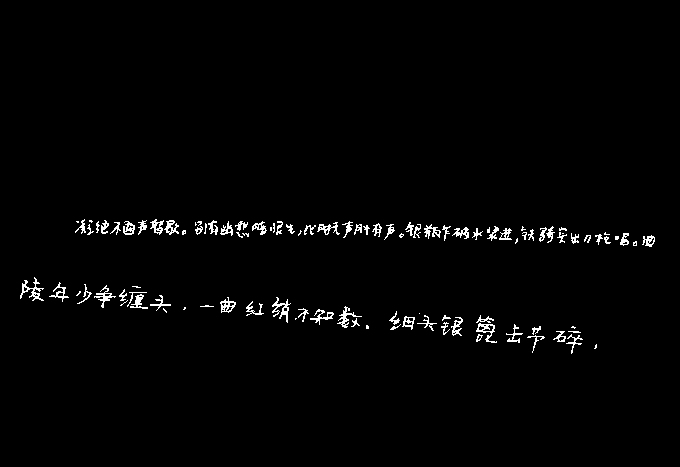 凝绝不通声暂歇。别有幽愁暗恨生,此时无声胜有声。银瓶乍破水浆迸,铁骑突出刀枪鸣。曲
陵年少争缠头,一曲红绡不知数。钿头银篦击节碎,